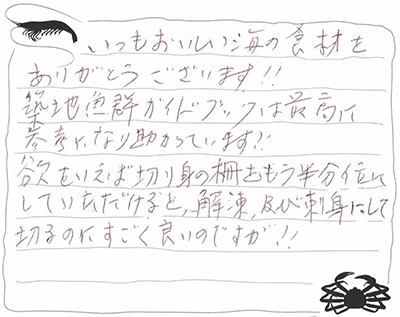 いつもおいしい海の食材を
ありがとうございます!!
築地魚群ガイドブックは最高に
参考になり助かっています!!
欲をいえば切り身の柵をもう半分位に
していただけると、解凍、及び刺身にして
切るのにすごく良いのですが!!